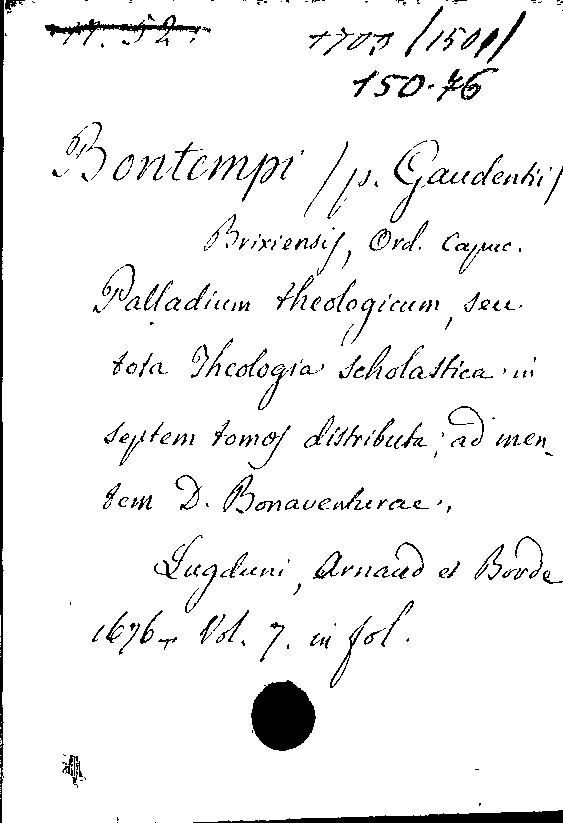 150.76
Bontempi /p. Gaudentii/
Brixiensis, Ord. Capuc.
Palladium theologicum, seu
tota Theologia scholastica in
septem tomos distributa, ad men-
tem D. Bonaventurae.,
Lugduni, Arnaud et Borde
1676. Vol. 7. in fol.